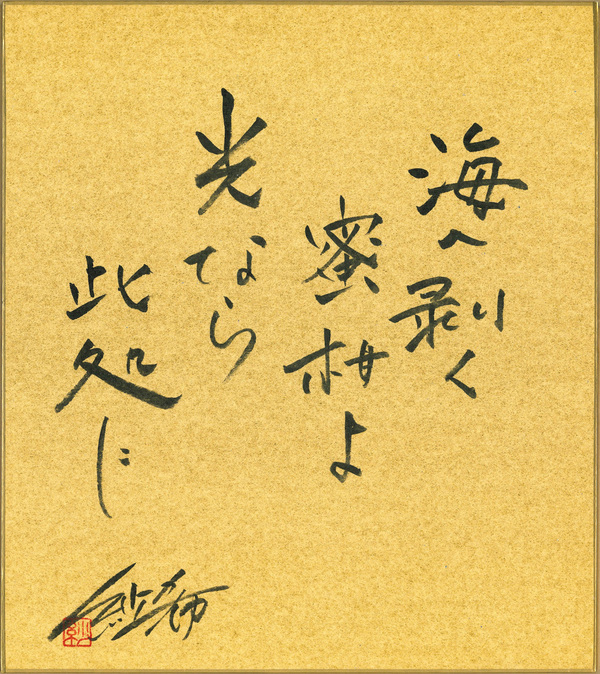 海へ剥く
蜜柑よ
光なら
此処に
紗希
紗